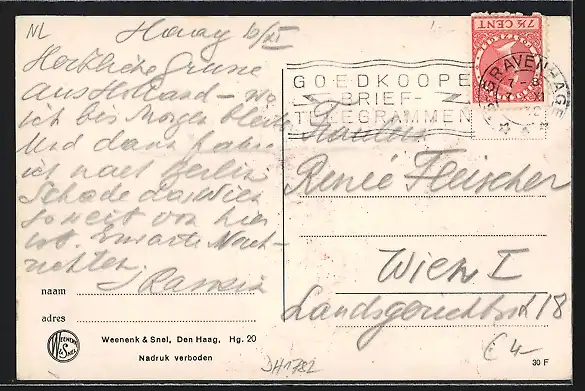 NL
Haag 6/XI
Herzliche Grüsse
aus Holland – wo
ich bis Morgen bleibe
Und dann fahre
ich nach Berlin
Schade das Wien
so weit von hier
ist. Erwarte Nach-
richten
naam
adres
WEENENK & SNEL
Weenenk & Snel, Den Haag, Hg. 20
Nadruk verboden
DH1782
7½ CENT
'S GRAVENHAGE
GOEDKOOPE
BRIEF-
TELEGRAMMEN
Fräulein
Renée Fleischer
Wien I
Landsgerichtsstr 18
€ 4-
30 F